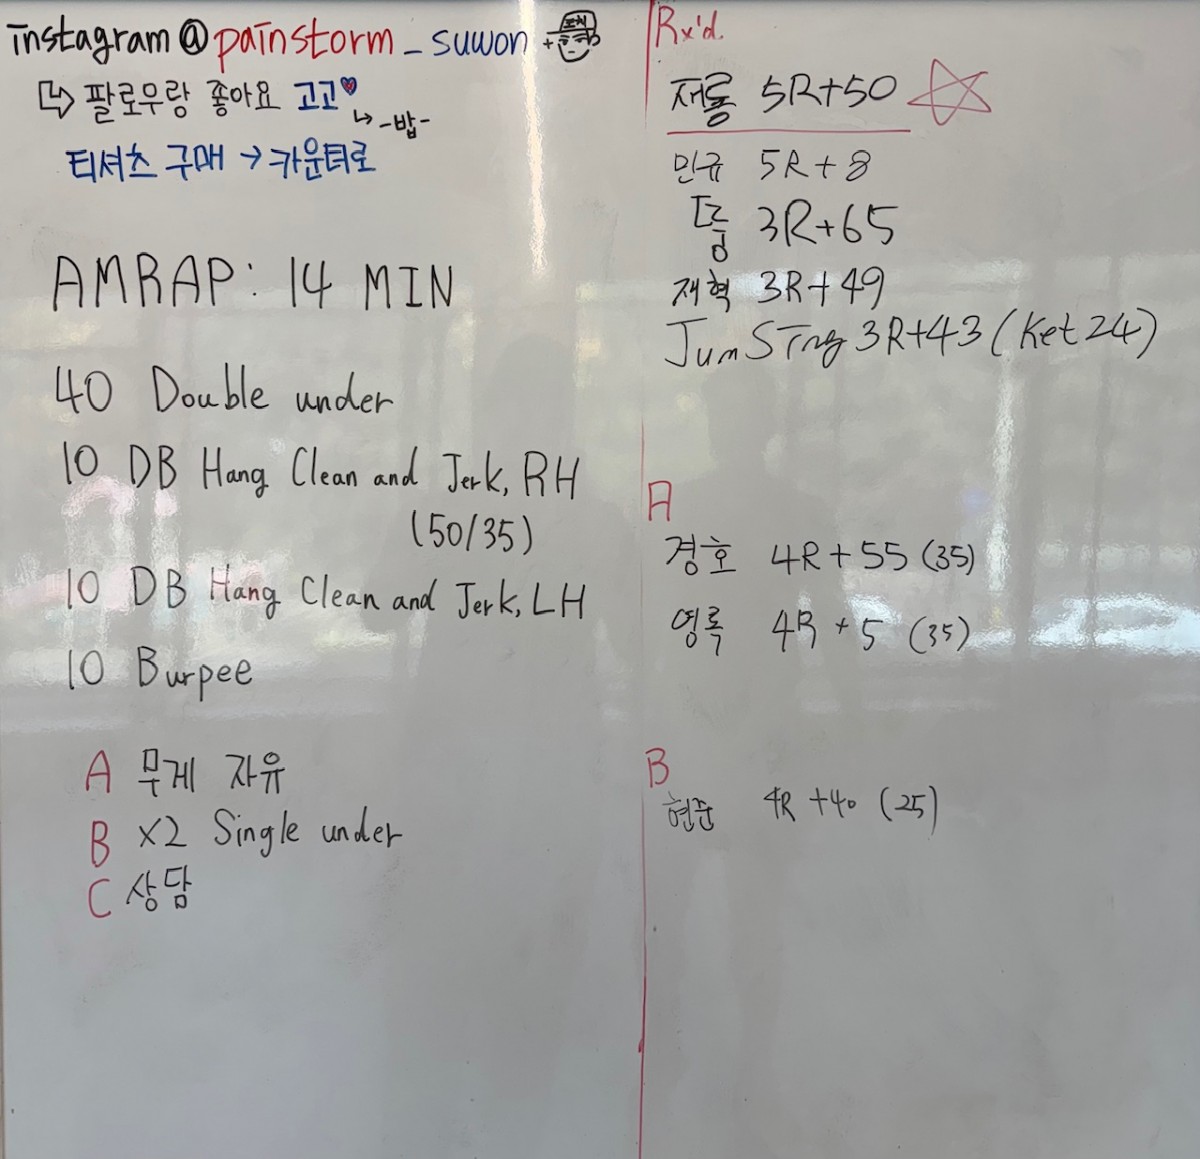 instagram@painstorm_suwon
팔로우랑 좋아요 고고
-밥-
티셔츠 구매 → 카운터로
AMRAP: 14 MIN
40 Double under
10 DB Hang Clean and Jerk, RH
(50/35)
10 DB Hang Clean and Jerk, LH
10 Burpee
A 무게 자유
B x2 Single under
C 상담
Rx'd.
재롱 5R+50
민규 5R+8
3R+65
재혁 3R+49
3R+43 (ket 24)
A
경호 4R+55 (35)
영록 4R+5 (35)
B
현준 4R+40 (25)